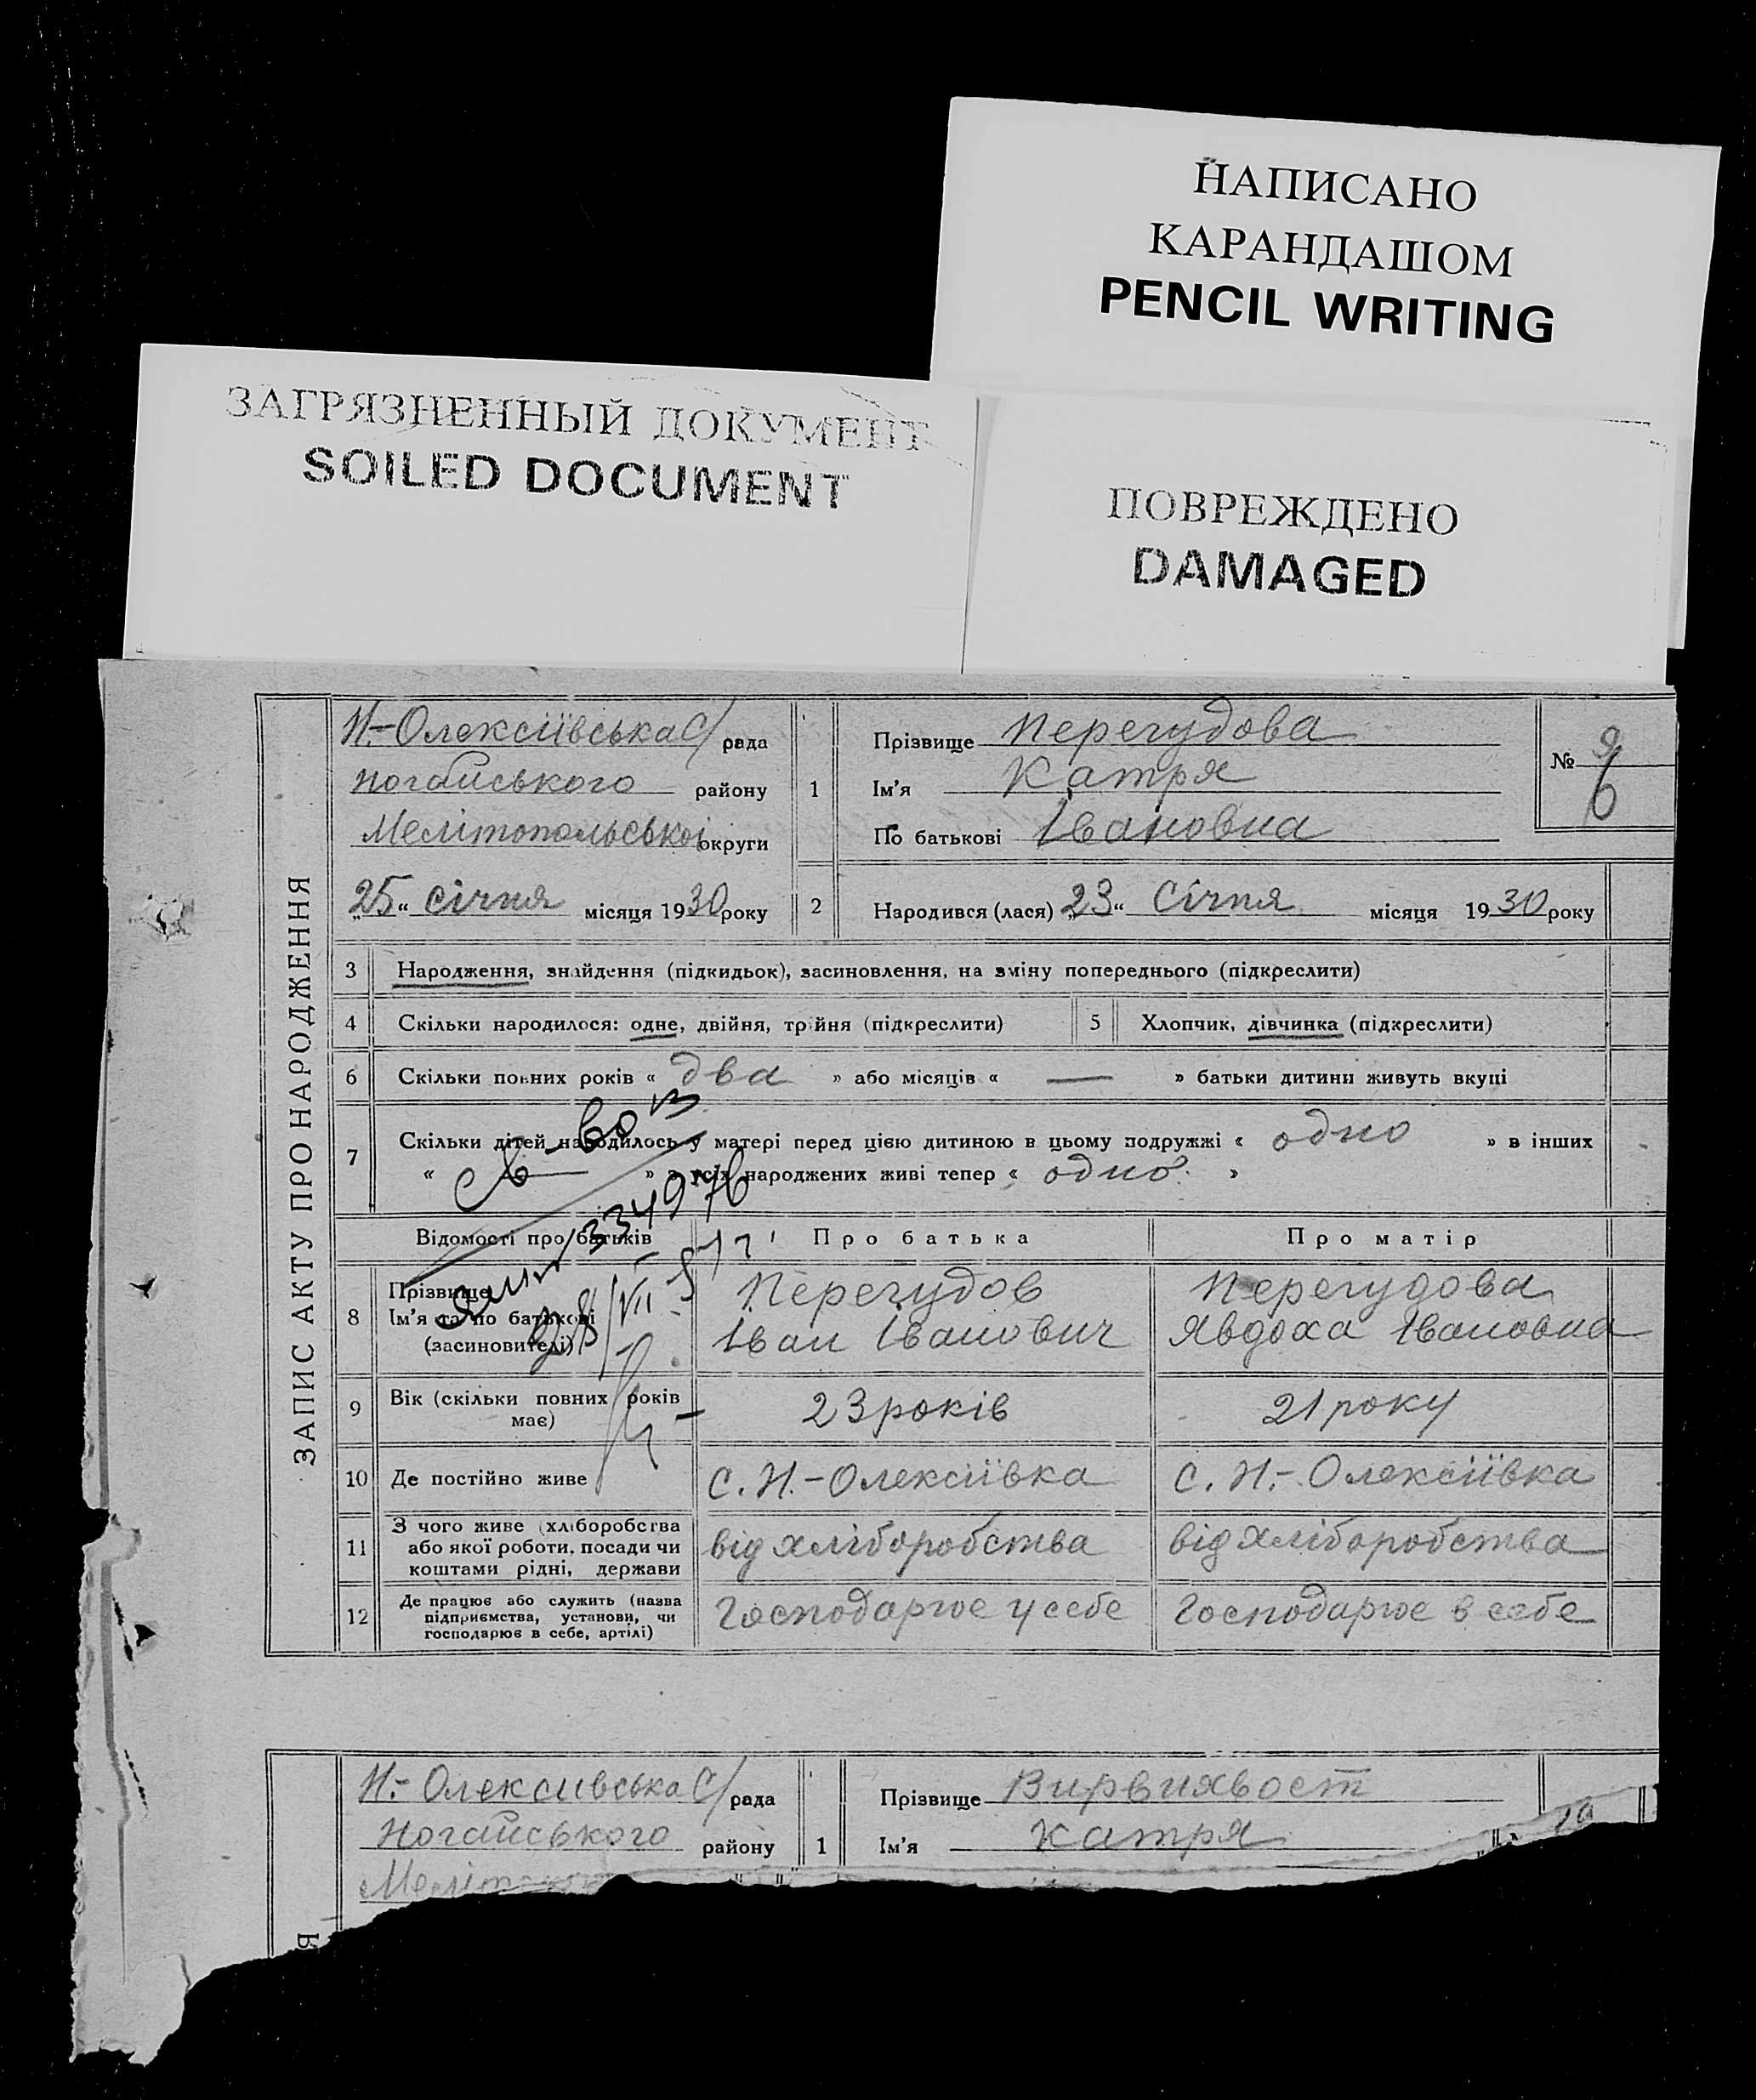 НАПИСАНО
КАРАНДАШОМ
PENCIL WRITING
ЗАГРЯЗНЕННЫЙ ДОКУМЕНТ
SOILED DOCUMENT
ПОВРЕЖДЕНО
DAMAGED
ЗАПИС АКТУ ПРО НАРОДЖЕННЯ
Н.-Олексіївська С/рада
Ногайського району
Мелітопольської округи
„25“ Січня місяця 1930 року
1 Прізвище Перегудова
Ім'я Катря
По батькові Івановна
№ 9
6
2 Народився (лася) „23“ Січня місяця 1930 року
3 Народження, знайдення (підкидьок), засиновлення, на зміну попереднього (підкреслити)
4 Скільки народилося: одне, двійня, трійня (підкреслити)
5 Хлопчик, дівчинка (підкреслити)
6 Скільки повних років « два » або місяців « — » батьки дитини живуть вкупі
7 Скільки дітей народилось у матері перед цією дитиною в цьому подружжі « одно » в інших
« — » з усіх народжених живі тепер « одно »
Св-во
334976
Відомості про батьків Про батька Про матір
8 Прізвище
Ім'я та по батькові
(засиновителі)
Перегудов
Іван Іванович
Перегудова
Явдоха Івановна
9 Вік (скільки повних років
має)
23 років
21 року
10 Де постійно живе С. Н.-Олексіївка С. Н.-Олексіївка
11 З чого живе (хліборобства
або якої роботи, посади чи
коштами рідні, держави
від хліборобства
від хліборобства
12 Де працює або служить (назва
підприємства, установи, чи
господарює в себе, артілі)
Господарює у себе
Господарює в себе
Н.-Олексивська С/рада
Ногайського району
Меліто
1 Прізвище Вирвихвост
Ім'я Катря
10
Я